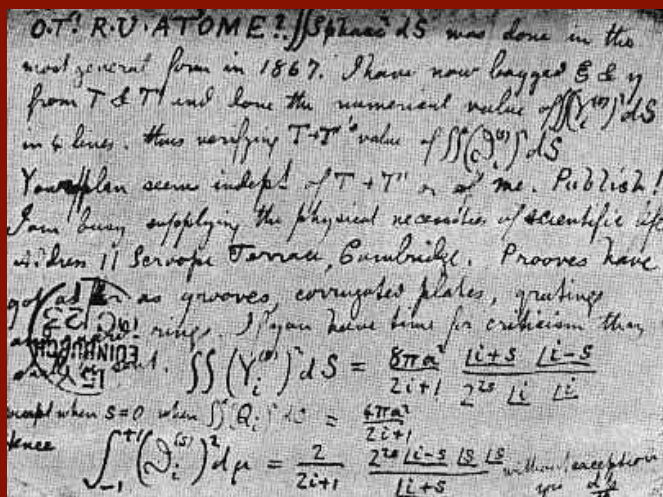 O.T! R.U. ATOME? ∬Spharc² dS was done in the
most general form in 1867. I have now bagged ξ & η
from T & T' and done the numerical value of ∬(Y_i^(s))² dS
in 4 lines. thus verifying T+T''s value of ∬(ϑ_i^(s))² dS
Your plan seems indept of T + T' or of me. Publish!
I am busy supplying the physical necessities of scientific life
Address 11 Scroope Terrace, Cambridge. Prooves have
got as far as grooves, corrugated plates, gratings
rings. If you have time for criticism they
sent. ∬(Y_i^(s))² dS = 8πa²/(2i+1) · |i+s |i-s / 2^2s |i |i
EDINBURGH
except when s=0 when ∬(Q_i)² dS = 4πa²/(2i+1)
Hence ∫_-1^+1 (ϑ_i^(s))² dμ = 2/(2i+1) · 2^2s |i-s |s |s / |i+s without exception
yrs dp/dt